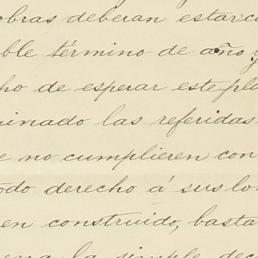 obras deberan estar co
ble término de año y
ho de esperar este pla
minado las referidas
e no cumplieren con
odo derecho á sus lo
en construido, basta
la simple dec